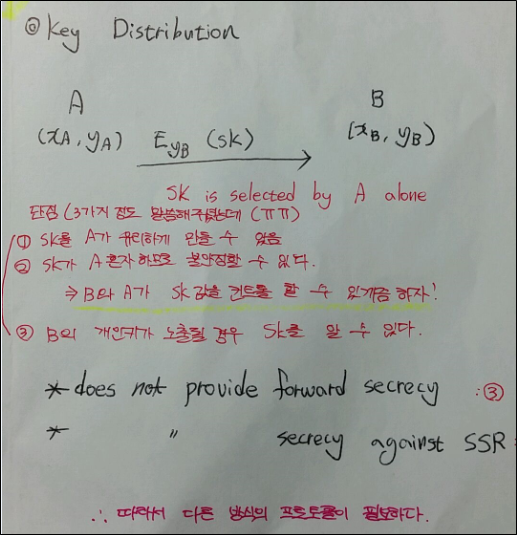 ◎ Key Distribution
A B
(xA, yA) EyB (sk) (xB, yB)
SK is selected by A alone
단점 (3가지 정도 말씀해주셨는데 (ㅠㅠ)
① SK를 A가 유리하게 만들 수 있음
② SK가 A혼자 하므로 불안정할 수 있다.
⇒ B와 A가 SK값을 컨트롤 할 수 있게끔 하자!
③ B의 개인키가 노출될 경우 SK를 알 수 있다.
* does not provide forward secrecy :③
* " secrecy against SSR
∴ 따라서 다른 방식의 프로토콜이 필요하다.